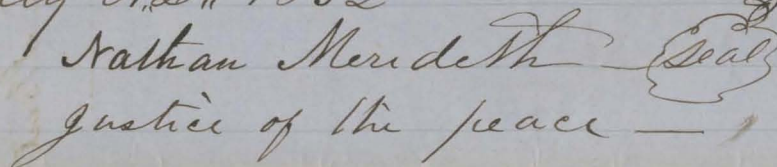 Nathan Merideth — seal
Justice of the peace —